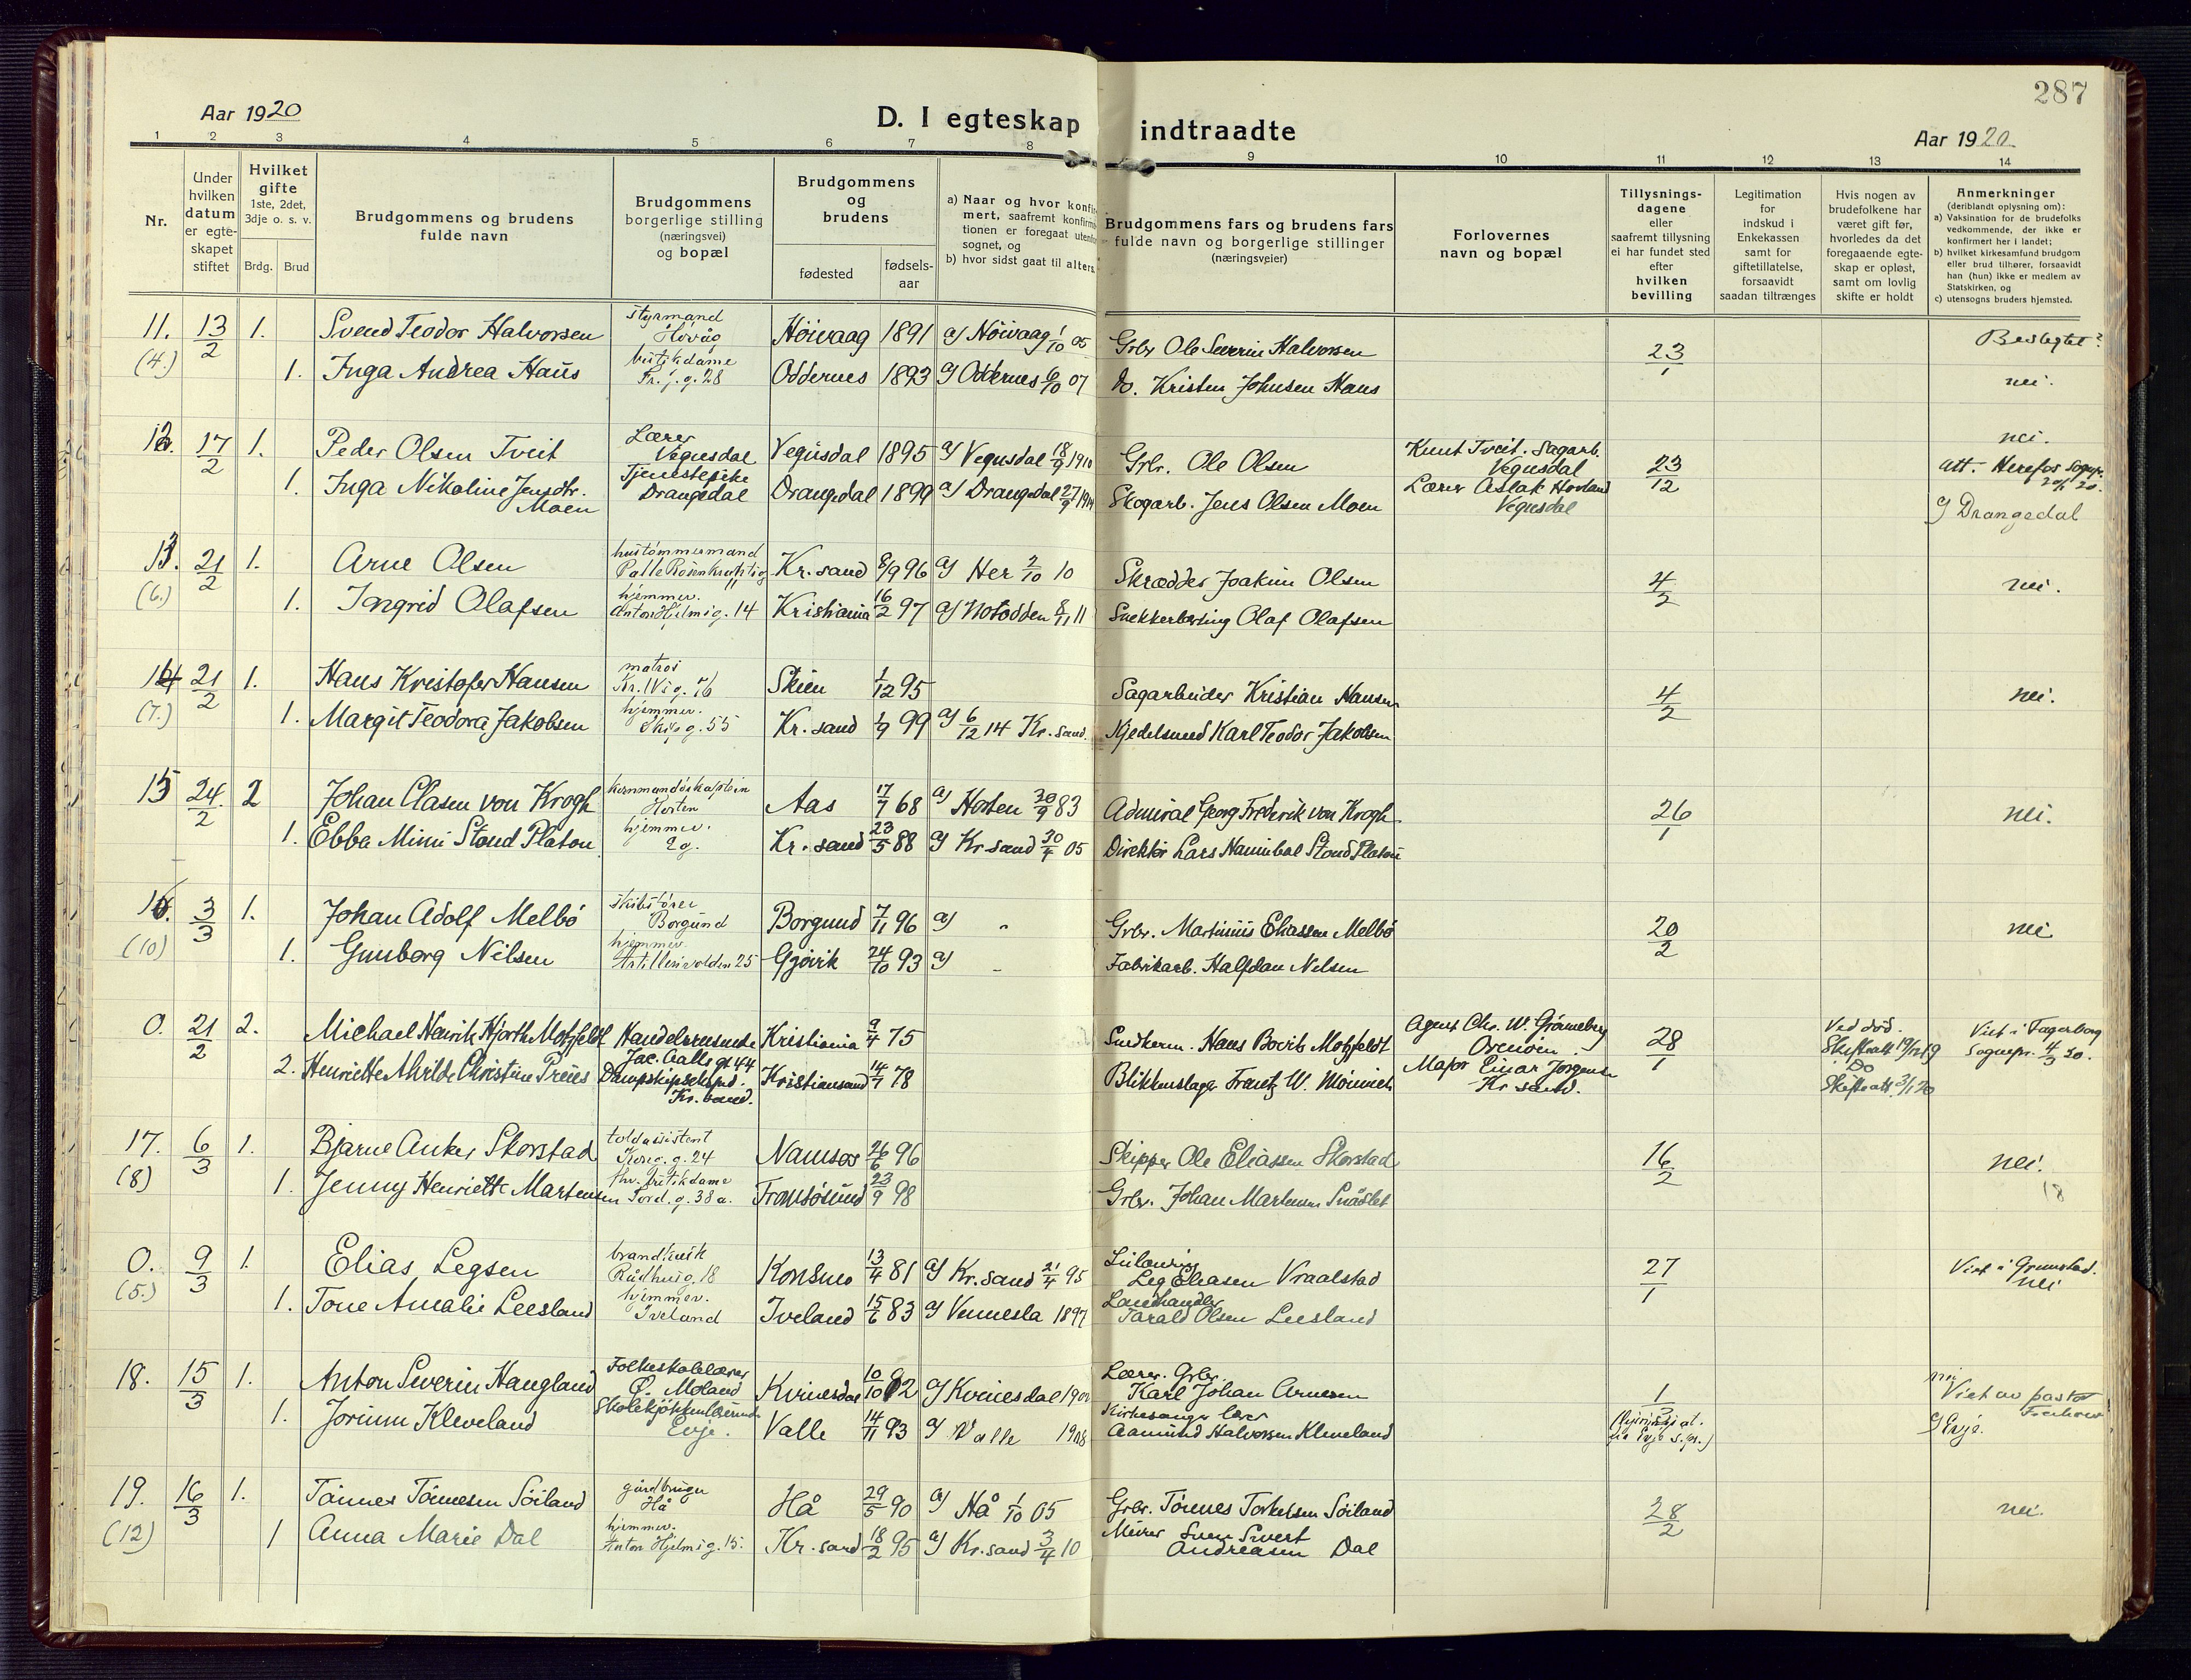 287
Aar 1920
D. I egteskap indtraadte
Aar 1920
1 2 3 4 5 6 7 8 9 10 11 12 13 14
Nr.
Under hvilken datum er egteskapet stiftet
Hvilket gifte 1ste, 2det, 3dje o. s. v.
Brdg. Brud
Brudgommens og brudens fulde navn
Brudgommens borgerlige stilling (næringsvei) og bopæl
Brudgommens og brudens
fødested
fødsels-aar
a) Naar og hvor konfirmert, saafremt konfirmationen er foregaat utenfor sognet, og
b) hvor sidst gaat til alters.
Brudgommens fars og brudens fars fulde navn og borgerlige stillinger (næringsveier)
Forlovernes navn og bopæl
Tillysnings-dagene eller saafremt tillysning ei har fundet sted efter hvilken bevilling
Legitimation for indskud i Enkekassen samt for giftetillatelse, forsaavidt saadan tiltrænges
Hvis nogen av brudefolkene har været gift før, hvorledes da det foregaaende egteskap er opløst, samt om lovlig skifte er holdt
Anmerkninger (deriblandt oplysning om):
a) Vaksination for de brudefolks vedkommende, der ikke er konfirmert her i landet;
b) hvilket kirkesamfund brudgom eller brud tilhører, forsaavidt han (hun) ikke er medlem av Statskirken, og
c) utensogns bruders hjemsted.
11. 13/2 1. Svend Teodor Halvorsen styrmand Høvåg Höivaag 1891 a) Höivaag 1/10 05 Grbr Ole Severin Halvorsen 23/1 Beslegtet?
(4.) 1. Inga Andrea Haus butikdame Fr. j. g. 28 Oddernes 1893 a) Oddernes 6/10 07 do. Kristen Johnsen Haus nei.
12. 17/2 1. Peder Olsen Tveit Lærer Vegusdal Vegusdal 1895 a) Vegusdal 18/9 1910 Grbr. Ole Olsen Knut Tveit. Sagarb. Vegusdal 23/12 nei.
1. Inga Nikoline Jensdtr. Moen Tjenestepike Drangedal Drangedal 1899 a) Drangedal 27/9 1914 Skogarb. Jens Olsen Moen Lærer Aslak Hovland Vegusdal att. Herefos Sognpr. 20/1 20.
c) Drangedal
13. 21/2 1. Arne Olsen hustømmermand Palle Rosenkrantzg 11 Kr.sand 8/9 96 a) Her 2/10 10 Skrædder Joakim Olsen 4/2 nei.
(6.) 1. Ingrid Olafsen hjemmev. Anton Hjelmsg. 14 Kristiania 16/2 97 a) Notodden 8/11 11 Snekkerlærling Olaf Olafsen
14 21/2 1. Hans Kristofer Hansen matros Kr. IV g. 76 Skien 1/12 95 Sagarbeider Kristian Hansen 4/2 nei.
(7.) 1. Margit Teodora Jakobsen hjemmev. Skipg. 55 Kr.sand 1/9 99 a) 6/12 14 Kr.sand. Kjedelsmed Karl Teodor Jakobsen
15 24/2 2 Johan Clasen von Krogh kommandørkaptein Horten Aas 17/7 68 a) Horten 30/9 83 Admiral Georg Frederik von Krogh 26/1 nei.
1. Ebba Mimi Stoud Platou hjemmev. Kr.sand 23/5 88 a) Kr sand 30/4 05 Direktör Lars Hannibal Stoud Platou
16. 3/3 1. Johan Adolf Melbö skibsfører Borgund Borgund 7/11 96 a) " Grbr. Martinius Eliassen Melbö 20/2 nei
(10) 1. Gunborg Nilsen hjemmev. Artillerivolden 25 Gjövik 24/10 93 a) " Fabrikarb. Halfdan Nilsen
0. 21/2 2. Michael Henrik Hjorth Motzfeldt Handelsreisende Jac. Aalls gt 44 Kristiania 9/4 75 Hans Motzfeldt Agent Chr. W. Grönneberg 28/1 Ved död. Skifteatt 19/12 19 Viet i Fagerborg Sognepr. 4/3 20.
2. Henriette Christine Preus Dampskipseksped. Kr.sand. Kristiansand 14/7 78 Blikkenslager Frantz W. Mönnich Major Einar Jørgensen Kr sand. Do Skifteatt. 3/1 20
17. 6/3 1. Bjarne Anker Skorstad toldassistent Kong. g. 24 Namsos 26/6 96 Skipper Ole Eliassen Skorstad 16/2 nei.
(8) 1. Jenny Henriette Martensen fhv. butikdame Tord. g. 38 a. Tromsösund 23/9 98 Grbr. Johan Martensen 18
0. 9/3 1. Elias Legsen brandkusk Rådhusg. 18 Konsmo 13/4 81 a) Kr.sand 21/4 95 Leg Eliasen Vraalstad 27/1 Viet i Grimstad. nei
(5.) 1. Tone Amalie Leesland hjemmev. Iveland Iveland 15/6 83 a) Vennesla 1897 Landhandler Tarald Olsen Leesland
18. 15/3 1. Anton Severin Haugland Folkeskolelærer Ø. Moland Kvinesdal 10/10 a) Kvinesdal Lærer. Grbr. Karl Johan Arnesen 1/3 nei Viet av pastor
1. Jorunn Kleveland Evje. Valle 14/11 93 a) Valle 1908 Kirkesanger lærer Aamund Halvorsen Kleveland fra Evje s.pr.) c) Evje.
19. 16/3 1. Tönnes Tönnesen Söiland gårdbruger Hå Hå 29/5 90 a) Hå 1/10 05 Grbr. Tönnes Torkelsen Söiland 28/2 nei.
(12) 1 Anna Marie Dal hjemmev. Anton Hjelms g. 15. Kr.sand 18/2 95 a) Kr.sand 3/4 10 Murer Sven Sivert Andreasen Dal